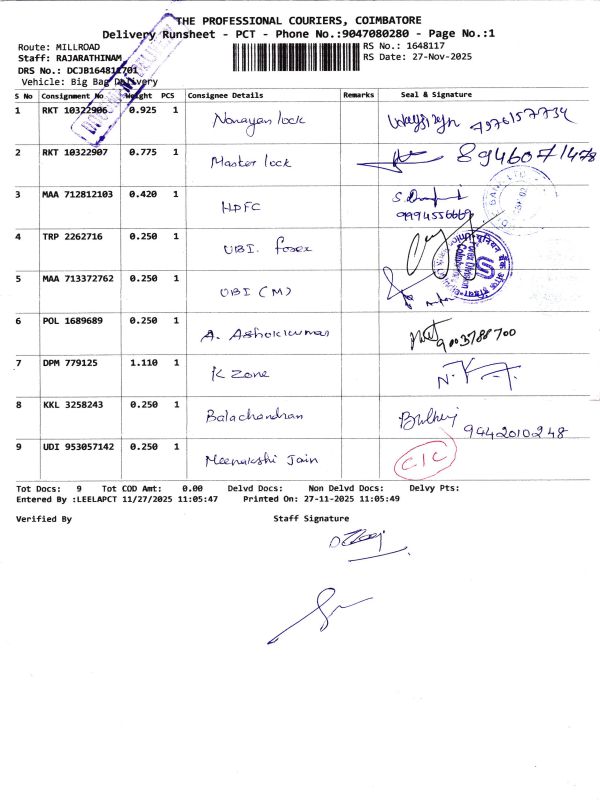 THE PROFESSIONAL COURIERS, COIMBATORE
Delivery Runsheet - PCT - Phone No.:9047080280 - Page No.:1
Route: MILLROAD RS No.: 1648117
Staff: RAJARATHINAM RS Date: 27-Nov-2025
DRS No.: DCJB164811701
Vehicle: Big Bag Delivery
S No Consignment No Weight PCS Consignee Details Remarks Seal & Signature
1 RKT 10322906 0.925 1 Narayan lock 7976157734
2 RKT 10322907 0.775 1 Master lock 8946071478
3 MAA 712812103 0.420 1 HDFC
9994556669
4 TRP 2262716 0.250 1 UBI. forex
5 MAA 713372762 0.250 1 UBI (M)
6 POL 1689689 0.250 1 A. Ashokkumar 9003788700
7 DPM 779125 1.110 1 K Zone
8 KKL 3258243 0.250 1 Balachandran
9442010248
9 UDI 953057142 0.250 1 Meenakshi Jain C/C
Tot Docs: 9 Tot COD Amt: 0.00 Delvd Docs: Non Delvd Docs: Delvy Pts:
Entered By :LEELAPCT 11/27/2025 11:05:47 Printed On: 27-11-2025 11:05:49
Verified By Staff Signature